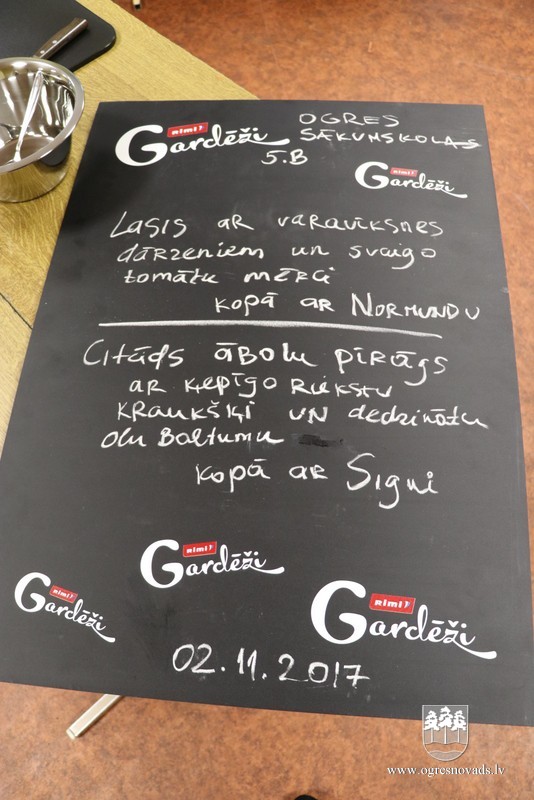 Rimi
Gardēži
OGRES
SĀKUMSKOLAS
5.B
Rimi
Gardēži
Lasis ar varavīksnes
dārzeņiem un svaigo
tomātu mērci
kopā ar NORMUNDU
Citāds ābolu pīrāgs
ar ķepīgo RIEKSTU
KRAUKŠĶI UN dedzinātu
olu Baltumu
kopā ar Signi
Rimi
Gardēži
Rimi
Gardēži
Rimi
Gardēži
02.11.2017
www.ogresnovads.lv